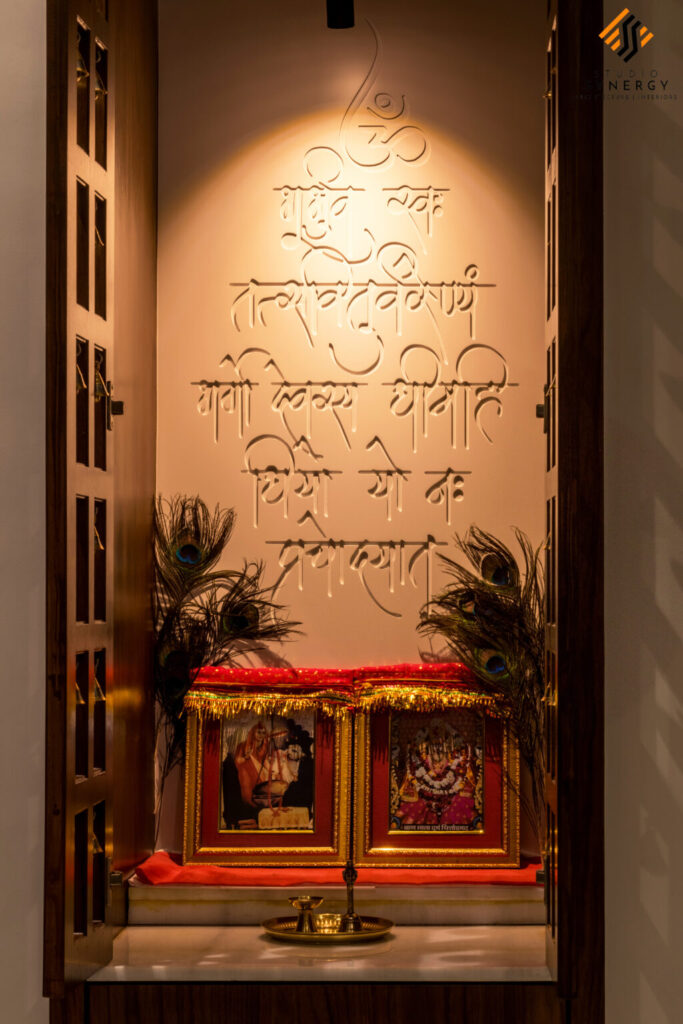 STUDIO
SYNERGY
INTERIORS
ॐ
भूर्भुव स्वः
तत्सवितुर्वरेण्यं
भर्गो देवस्य धीमहि
धियो यो नः
प्रचोदयात
बाण माता